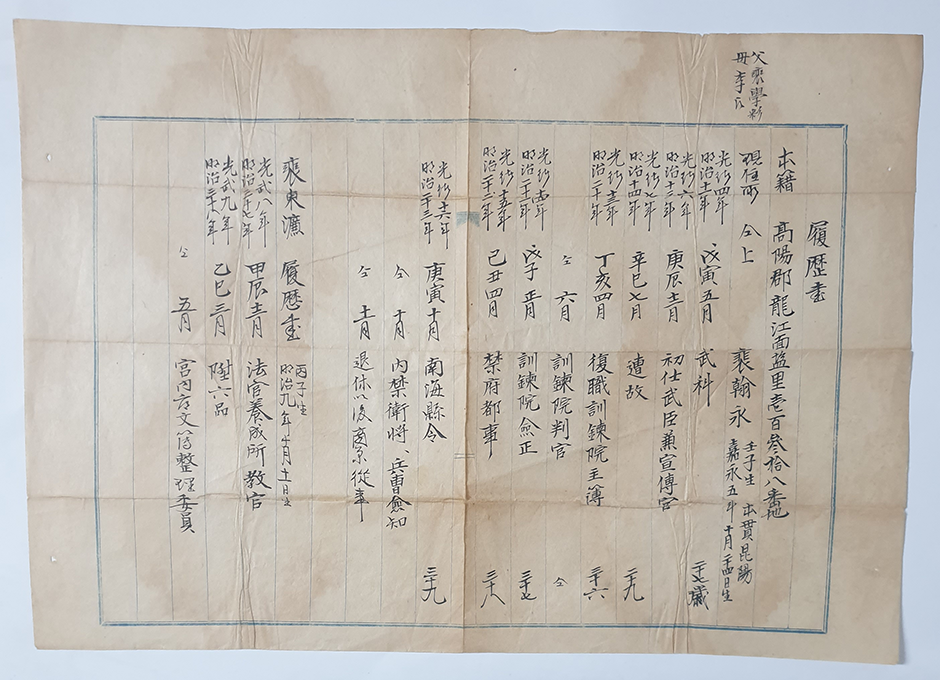 父裵學
母李氏
履歷書
本籍 高陽郡龍江面 里壱百參拾八番地
現住所 仝上 裵翰永 壬子生 本貫昆陽
嘉永五年 十月二十四日生
光緒四年
明治十一年 戊寅五月 武科 二十七歲
光緒六年
明治十三年 庚辰十二月 初仕武臣兼宣傳官
光緒七年
明治十四年 辛巳七月 遭故 二十九
光緒十三年
明治二十年 丁亥四月 復職訓鍊院主簿 三十六
仝 六月 訓鍊院判官 仝
光緒十四年
明治二十一年 戊子正月 訓鍊院僉正 三十七
光緒十五年
明治二十二年 己丑四月 禁府都事 三十八
光緒十六年
明治二十三年 庚寅十月 南海縣令 三十九
仝 十月 內禁衛將、兵曹僉知
仝 十二月 退休以後 從事
裵東濂 履歷書 丙子生
明治九年 十二日生
光武八年
明治三十七年 甲辰十二月 法官養成所敎官
光武九年
明治三十八年 乙巳三月 陞六品
仝 五月 宮內府文簿整理委員